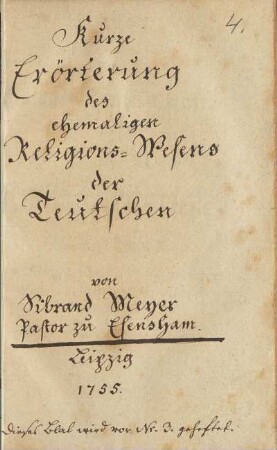 4.
Kurze
Erörterung
des
ehemaligen
Religions=Wesens
der
Teutschen
von
Sibrand Meyer
Pastor zu Esensham.
Leipzig
1755.
Dieses Blat wird vor Nr. 3. geheftet.